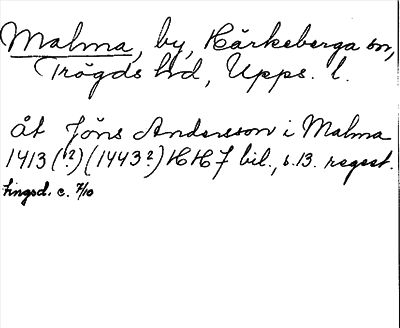 Malma, by, Härkeberga sn,
Trögds hd, Upps. l.
Åt Jöns Andersson i Malma
1413 (?) (1443?) HH f bil., s. 13. regest.
tingsd. c. 7/10